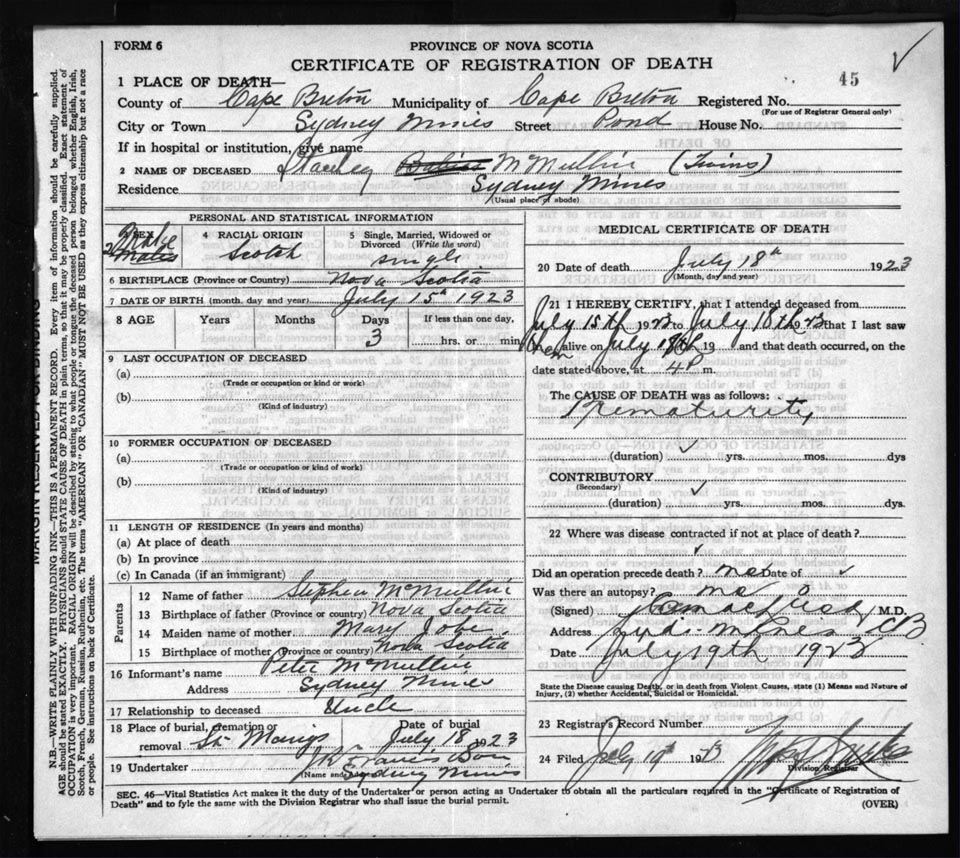 FORM 6
PROVINCE OF NOVA SCOTIA
CERTIFICATE OF REGISTRATION OF DEATH
45
1 PLACE OF DEATH—
County of Cape Breton Municipality of Cape Breton Registered No.
(For use of Registrar General only)
City or Town Sydney Mines Street Pond House No.
If in hospital or institution, give name
2 NAME OF DECEASED McMullin (Twins)
Residence Sydney Mines
(Usual place of abode)
PERSONAL AND STATISTICAL INFORMATION
SEX Male
2 Males
4 RACIAL ORIGIN
Scotch
5 Single, Married, Widowed or Divorced (Write the word)
single
6 BIRTHPLACE (Province or Country) Nova Scotia
7 DATE OF BIRTH (month, day and year) July 15th 1923
8 AGE Years Months Days If less than one day,
3 hrs. or min
9 LAST OCCUPATION OF DECEASED
(a)
(Trade or occupation or kind of work)
(b)
(Kind of industry)
10 FORMER OCCUPATION OF DECEASED
(a)
(Trade or occupation or kind of work)
(b)
(Kind of industry)
11 LENGTH OF RESIDENCE (In years and months)
(a) At place of death
(b) In province
(c) In Canada (if an immigrant)
Parents
12 Name of father Stephen McMullin
13 Birthplace of father (Province or country) Nova Scotia
14 Maiden name of mother Mary
15 Birthplace of mother (Province or country) Nova Scotia
16 Informant's name Peter McMullin
Address Sydney Mines
17 Relationship to deceased Uncle
18 Place of burial, cremation or removal St Marys Date of burial July 18 1923
19 Undertaker
(Name and Sydney Mines
MEDICAL CERTIFICATE OF DEATH
20 Date of death July 18th 1923
(Month, day and year)
21 I HEREBY CERTIFY, that I attended deceased from
July 15th 1923 to July 18th 1923 that I last saw
alive on July 19 and that death occurred, on the
date stated above, at 4P m.
The CAUSE OF DEATH was as follows:
Prematurity
(duration) ✓ yrs. mos. dys
CONTRIBUTORY
(Secondary)
(duration) ✓ yrs. mos. dys.
22 Where was disease contracted if not at place of death?
✓
Did an operation precede death? no Date of ✓
Was there an autopsy? no
(Signed) M.D.
Address CB
Date July 19th 1923
State the Disease causing Death, or in death from Violent Causes, state (1) Means and Nature of Injury, (2) whether Accidental, Suicidal or Homicidal.
23 Registrar's Record Number
24 Filed July 19th 1923
Division Registrar
SEC. 46—Vital Statistics Act makes it the duty of the Undertaker or person acting as Undertaker to obtain all the particulars required in the "Certificate of Registration of
Death" and to fyle the same with the Division Registrar who shall issue the burial permit.
(OVER)
MARGIN RESERVED FOR BINDING
N.B.—WRITE PLAINLY WITH UNFADING INK—THIS IS A PERMANENT RECORD. Every item of information should be carefully supplied.
AGE should be stated EXACTLY. PHYSICIANS should STATE CAUSE OF DEATH in plain terms, so that it may be properly classified. Exact statement of
OCCUPATION is very important. RACIAL ORIGIN will be described by stating to what people or tongue the deceased person belonged whether English, Irish,
Scotch, French, German, Russian, Ruthenian, etc. The terms "AMERICAN" OR "CANADIAN" MUST NOT BE USED as they express citizenship but not a race
or people. See instructions on back of Certificate.